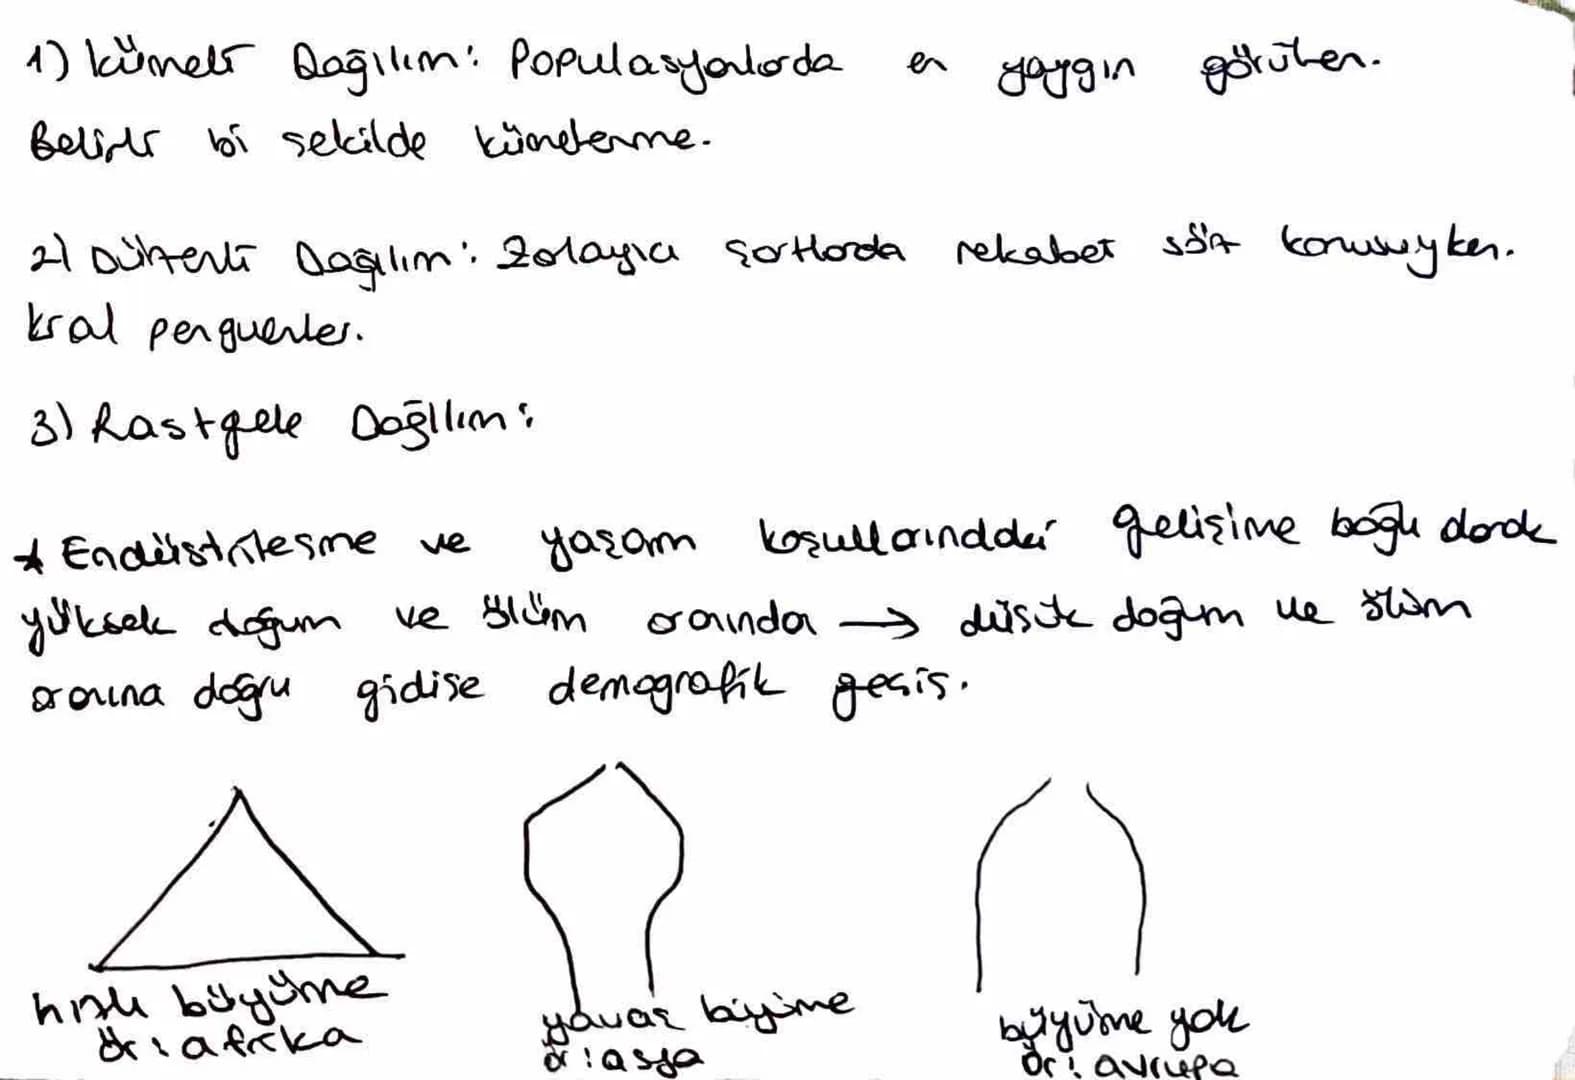 1) Kümeli Dağılım: Populasyonlarda en yaygın görülen.
Belirli bi şekilde kümelenme.
2) Düzenli Dağılım: Zorlayıcı şartlarda rekabet söz konusuyken.
Kral penguenler.
3) Rastgele Dağılım:
* Endüstrileşme ve yaşam koşullarındaki gelişime bağlı olarak
yüksek doğum ve ölüm oranından → düşük doğum ve ölüm
oranına doğru gidişe demografik geçiş.
hızlı büyüme
ör: afrika
yavaş büyüme
ör: asya
büyüme yok
ör: avrupa